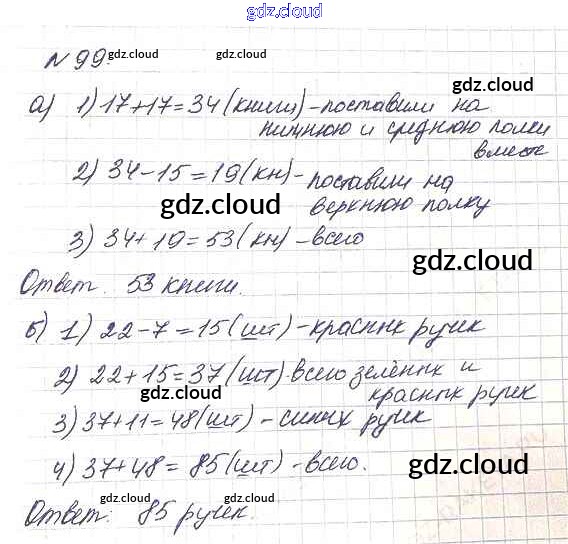 gdz.cloud
№ 99. gdz.cloud gdz.cloud
gdz.cloud
а) 1) 17+17=34 (книги) - поставили на
нижнюю и среднюю полки
вместе
2) 34-15=19 (кн) - поставили на
верхнюю полку
gdz.cloud
3) 34+19=53 (кн) - всего
gdz.cloud
Ответ. 53 книги.
б) 1) 22-7=15 (шт) - красных ручек
2) 22+15=37 (шт) - всего зелёных и
красных ручек
gdz.cloud
3) 37+11=48 (шт) - синих ручек
4) 37+48=85 (шт) - всего.
gdz.cloud
gdz.cloud gdz.cloud
Ответ: 85 ручек.